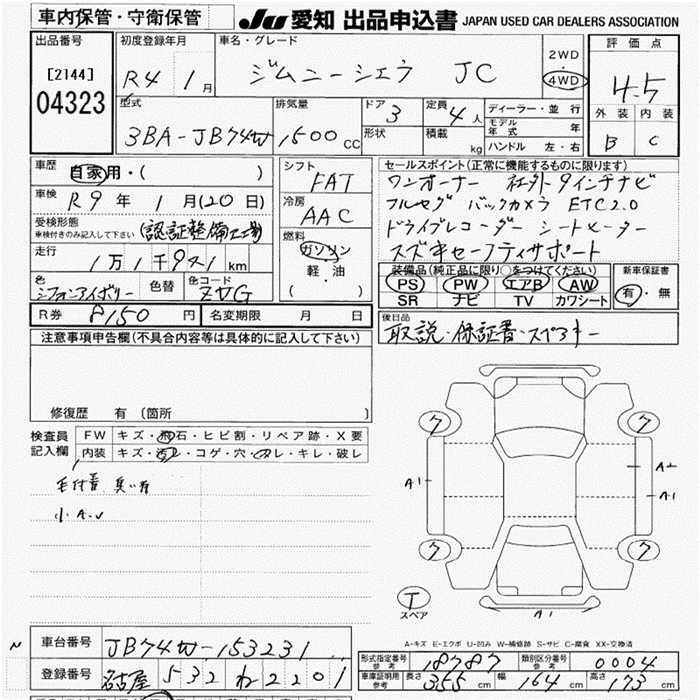 車内保管・守衛保管
JU 愛知 出品申込書 JAPAN USED CAR DEALERS ASSOCIATION
出品番号
[2144]
04323
初度登録年月
R4 1月
車名・グレード
ジムニーシエラ JC
2WD
・
4WD
評価点
4.5
外装 内装
B C
型式
3BA-JB74W
排気量
1500 CC
ドア
3
形状
定員
4人
積載
kg
ディーラー・並行
モデル年式 年
ハンドル 左・右
車歴
自家用・( )
車検
R9年 1月(20日)
受検形態
車検付きのみ記入して下さい
(認証整備工場)
走行
1万1千921km
色
シフォンアイボリー
色替
色コード
ZVG
シフト
FAT
冷房
AAC
燃料
ガソリン
軽・油
( )
セールスポイント(正常に機能するものに限ります)
ワンオーナー 社外9インチナビ
フルセグ バックカメラ ETC2.0
ドライブレコーダー シートヒーター
スズキセーフティサポート
装備品(純正品に限り○をつけてください)
PS PW エアB AW
SR ナビ TV カワシート
新車保証書
有・無
R券 8150円
名変期限 月 日
後日品
取説・保証書・スペアキー
注意事項申告欄(不具合内容等は具体的に記入して下さい)
修復歴 有(箇所 )
検査員
記入欄
FW キズ・飛石・ヒビ割・リペア跡・X要
内装 キズ・汚レ・コゲ・穴・スレ・キレ・破レ
毛付着 臭い有
小A.U
ク ク
A1 A2
A1
ク ク
T
スペア
A1
A-キズ E-エクボ U-凹み W-補修跡 S-サビ C-腐食 XX-交換済
N
車台番号 JB74W-153231
登録番号 名古屋 532 ね 2201
形式指定番号
参考
18787
類別区分番号
参考
0004
車庫証明用
参考
長さ 355cm 幅 164cm 高さ 173cm